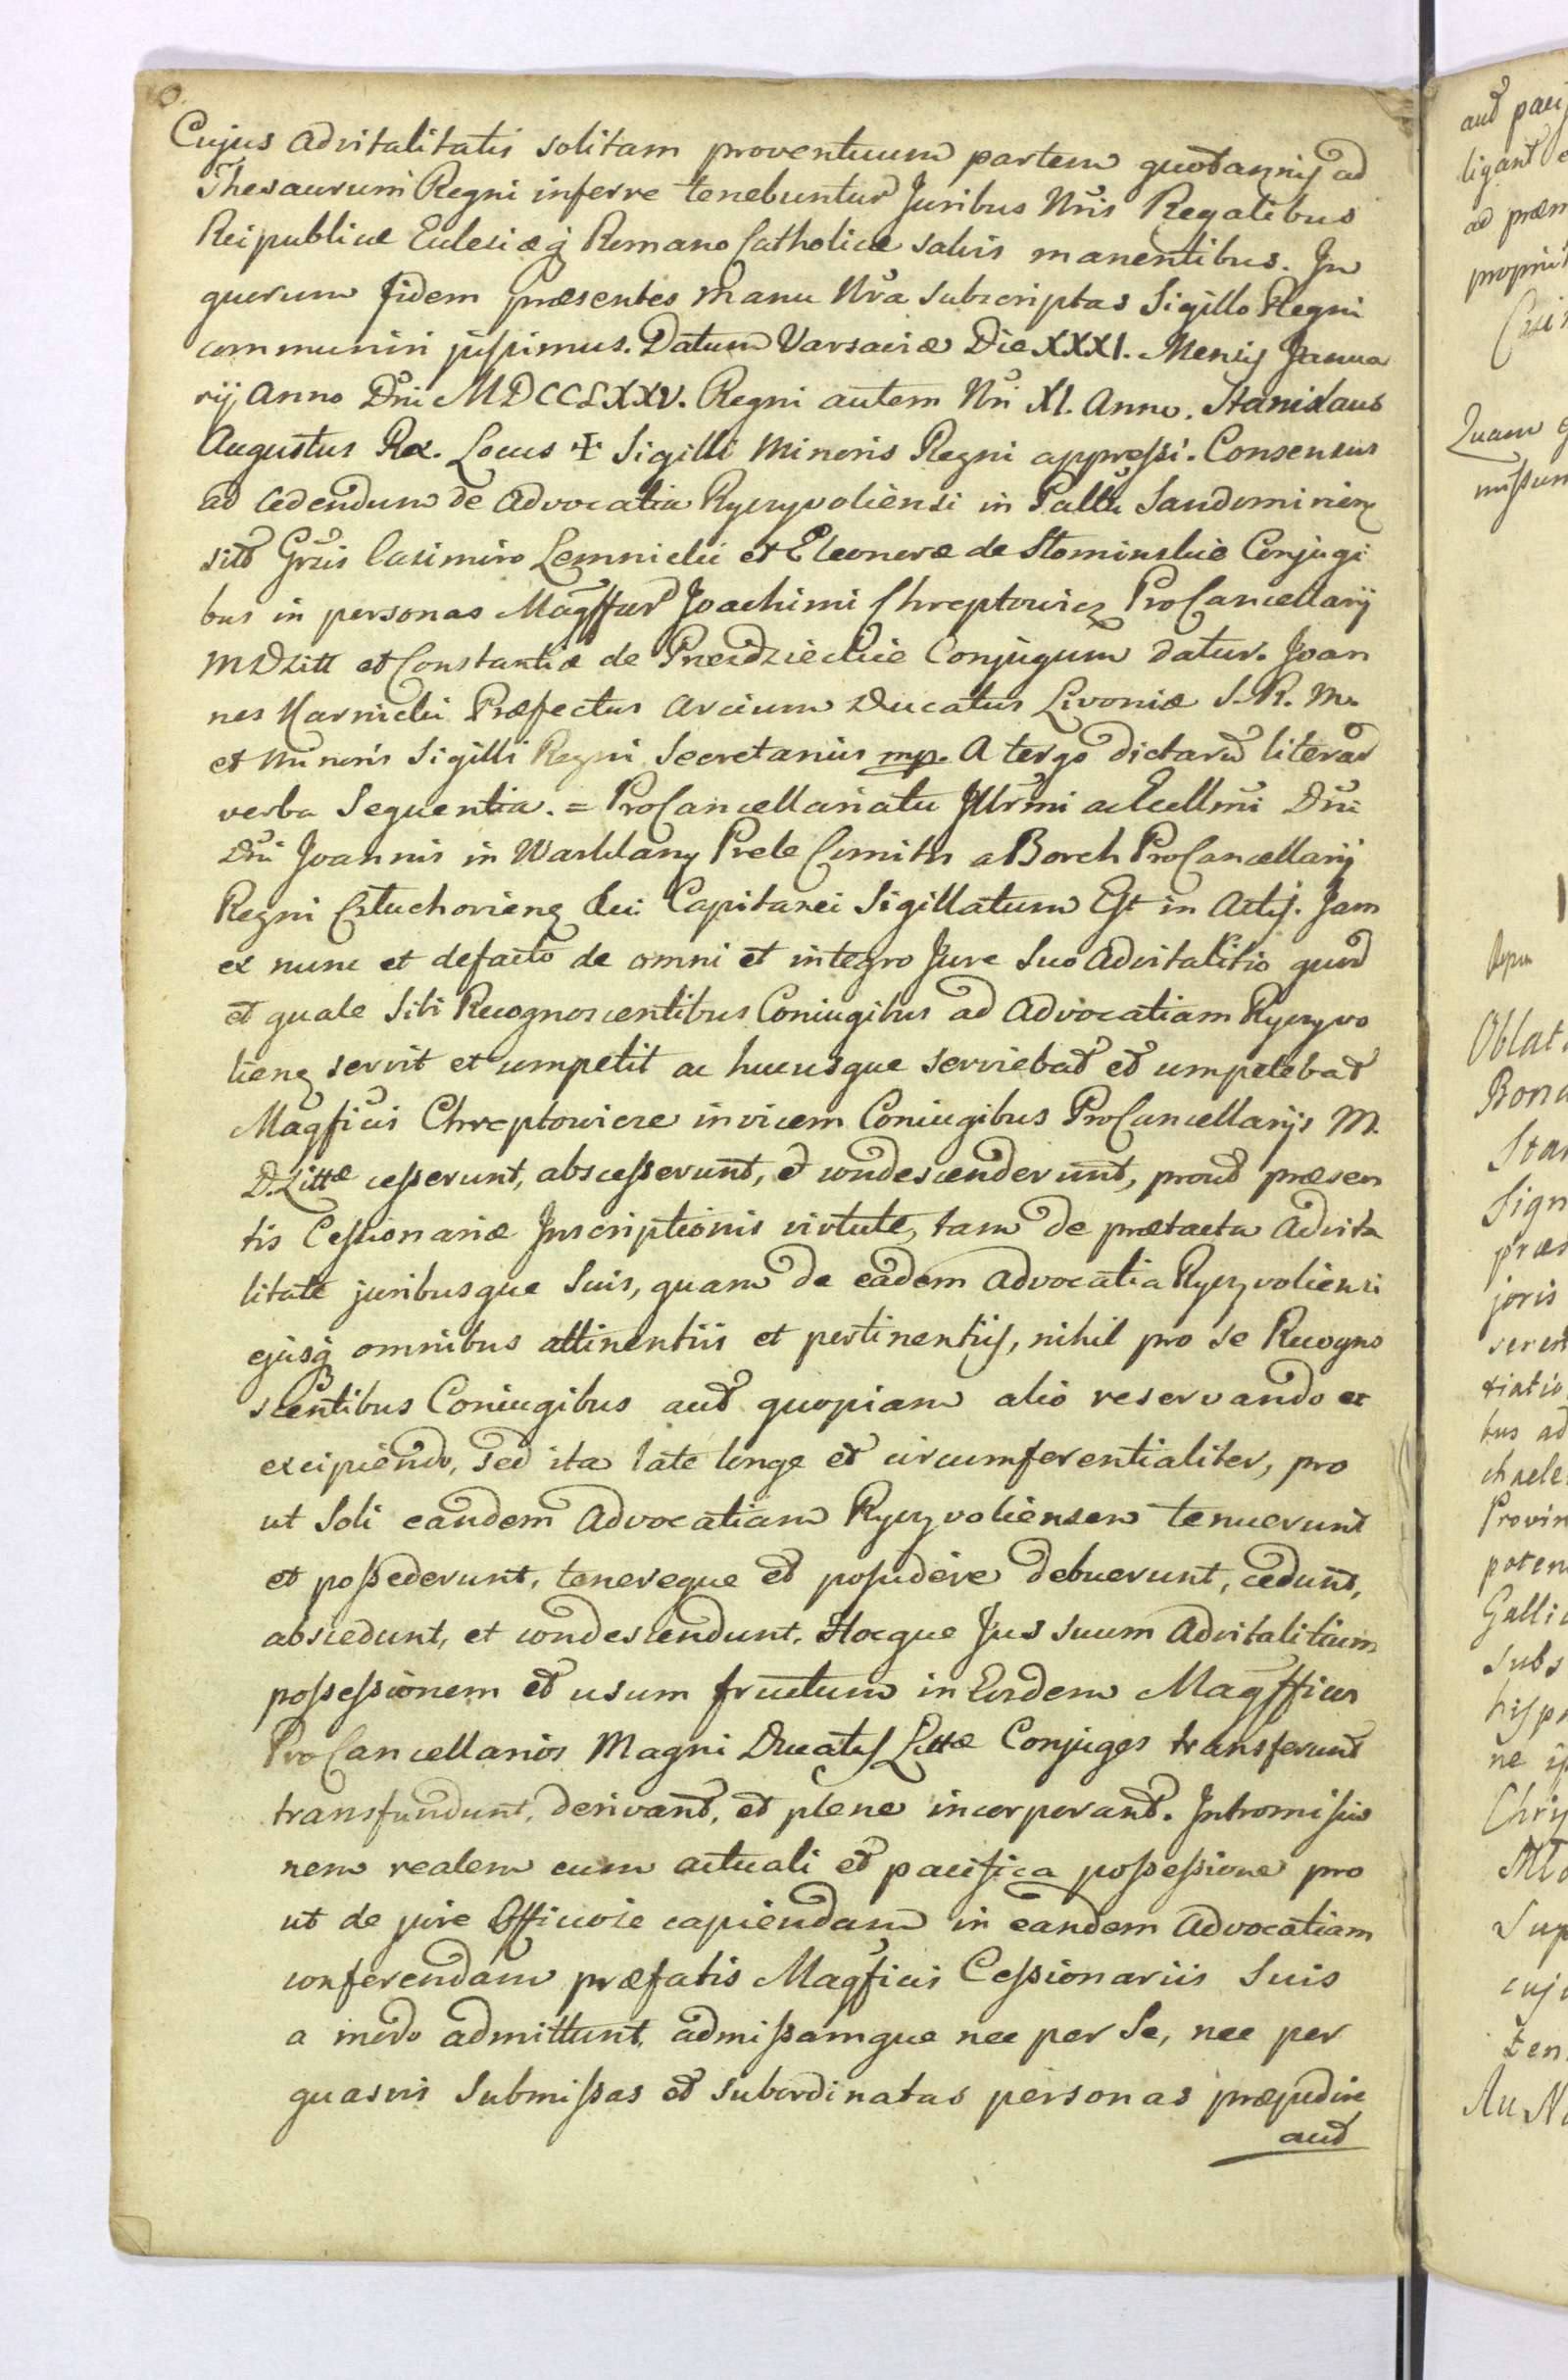 Cujus advitalitatis solitam proventuum partem quotannis ad
Thesaurum Regni inferre tenebuntur Juribus Nris Regalibus
Reipublicæ Eclesiæq Romano Catholicæ salvis manentibus. In
quorum fidem præsentes manu Nra subscriptas Sigillo Regni
communiri jussimus. Datum Varsaviæ Die XXXI. Mensis Janua
rij Anno Dni MDCCLXXV. Regni autem Nri XI. Anno. Stanislaus
Augustus Rex. Locus ✠ Sigilli Minoris Regni appressi. Consensus
ad cedendum de Advocatia Ryczyvoliensi in Palttu Sandomirien
sito Grsis Casimiro Lemnicki et Eleonoræ de Slominskie Conjugi
bus in personas Magffcar Joachimi Chreptowicz ProCancellarij
MDLitt et Constantiæ de Przezdzieckie Conjugum datur. Joan
nes Karnicki Præfectus Arcium Ducatus Livoniæ S. R. M.
et Minoris Sigilli Regni Secretarius mp. A tergo dictar literar
verba sequentia. = ProCancellariatu Illrmi ac Ecellmi Dni
Dni Joannis in Warklany Prele Comitis a Borch ProCancellarij
Regni Capitanei Sigillatum Est in Actis. Jam
ex nunc et defacto de omni et integro Jure Suo Advitalitio quod
et quale Sibi Recognoscentibus Coniugibus ad Advocatiam Ryczyvo
lienz servit et competit ac hucusque serviebat et competebat
Magficis Chreptowicze invicem Coniugibus ProCancellarijs M.
D. Littæ cesserunt, abscesserunt, et condescenderunt, prout præsen
tis Cessionariæ Inscriptionis virtute, tam de prætacta Advita
litate juribusque Suis, quam de eadem Advocatia Ryczyvoliensi
ejusq omnibus attinentiis et pertinentijs, nihil pro se Recogno
scentibus Coniugibus aut quopiam alio reservando et
excipiendo, sed ita late longe et circumferentialiter, pro
ut Soli eandem Advocatiam Ryczyvoliensem tenuerunt
et possederunt, tenereque et possidere debuerunt, cedunt,
abscedunt, et condescendunt. Hocque Jus suum Advitalitium
possessionem et usum fructum in Eosdem Magfficos
ProCancellarios Magni Ducatus Littæ Conjuges transferunt
transfundunt, derivant, et plene incorporant. Intromissio
nem realem cum actuali et pacifica possessione pro
ut de jure Officiose capiendam in eandem Advocatiam
conferendam præfatis Magficis Cessionariis Suis
a modo admittunt admissamque nec per Se, nec per
quasvis Submissas et subordinatas personas præpedire
aut
aut paci
ligant
ad præm
propriis
Quam
missum
Oblat
Bona
Sta
Sign
præs
joris
serent
tiatio
bus ad
chaele
Provin
poten
Galli
subs
hispa
ne
Chry
Sup
cuj
ten